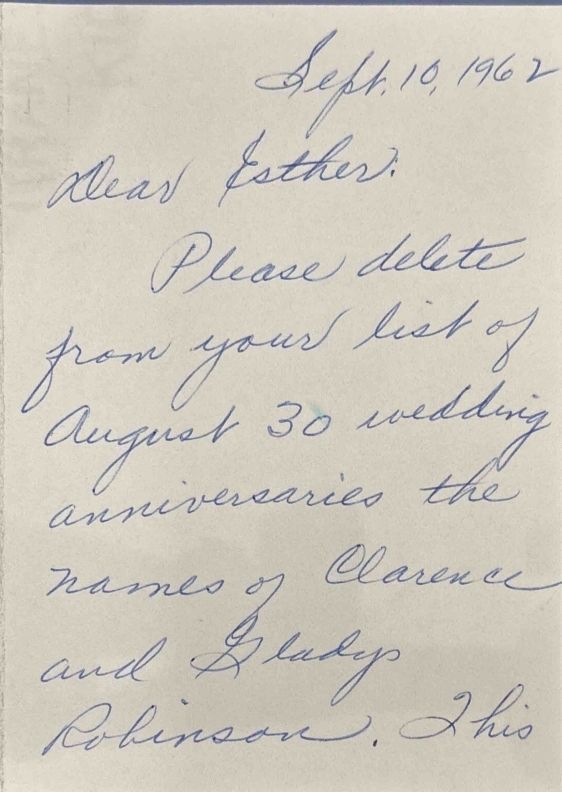 Sept. 10, 1962
Dear Esther:
Please delete
from your list of
August 30 wedding
anniversaries the
names of Clarence
and Gladys
Robinson. This